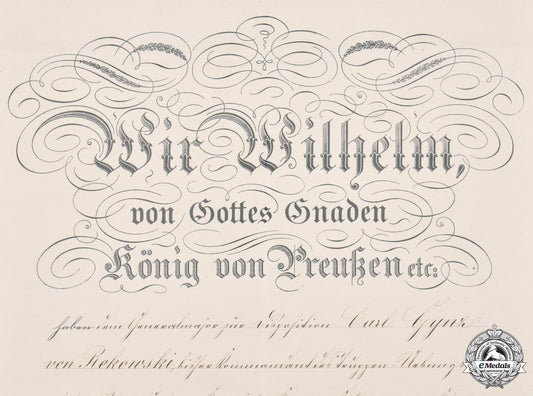 Wir Wilhelm,
von Gottes Gnaden
König von Preußen etc:
haben dem Generalmajor zur Disposition Carl Gynz
von Rekowski, bisher Kommandant des Truppen Uebungs
eMedals